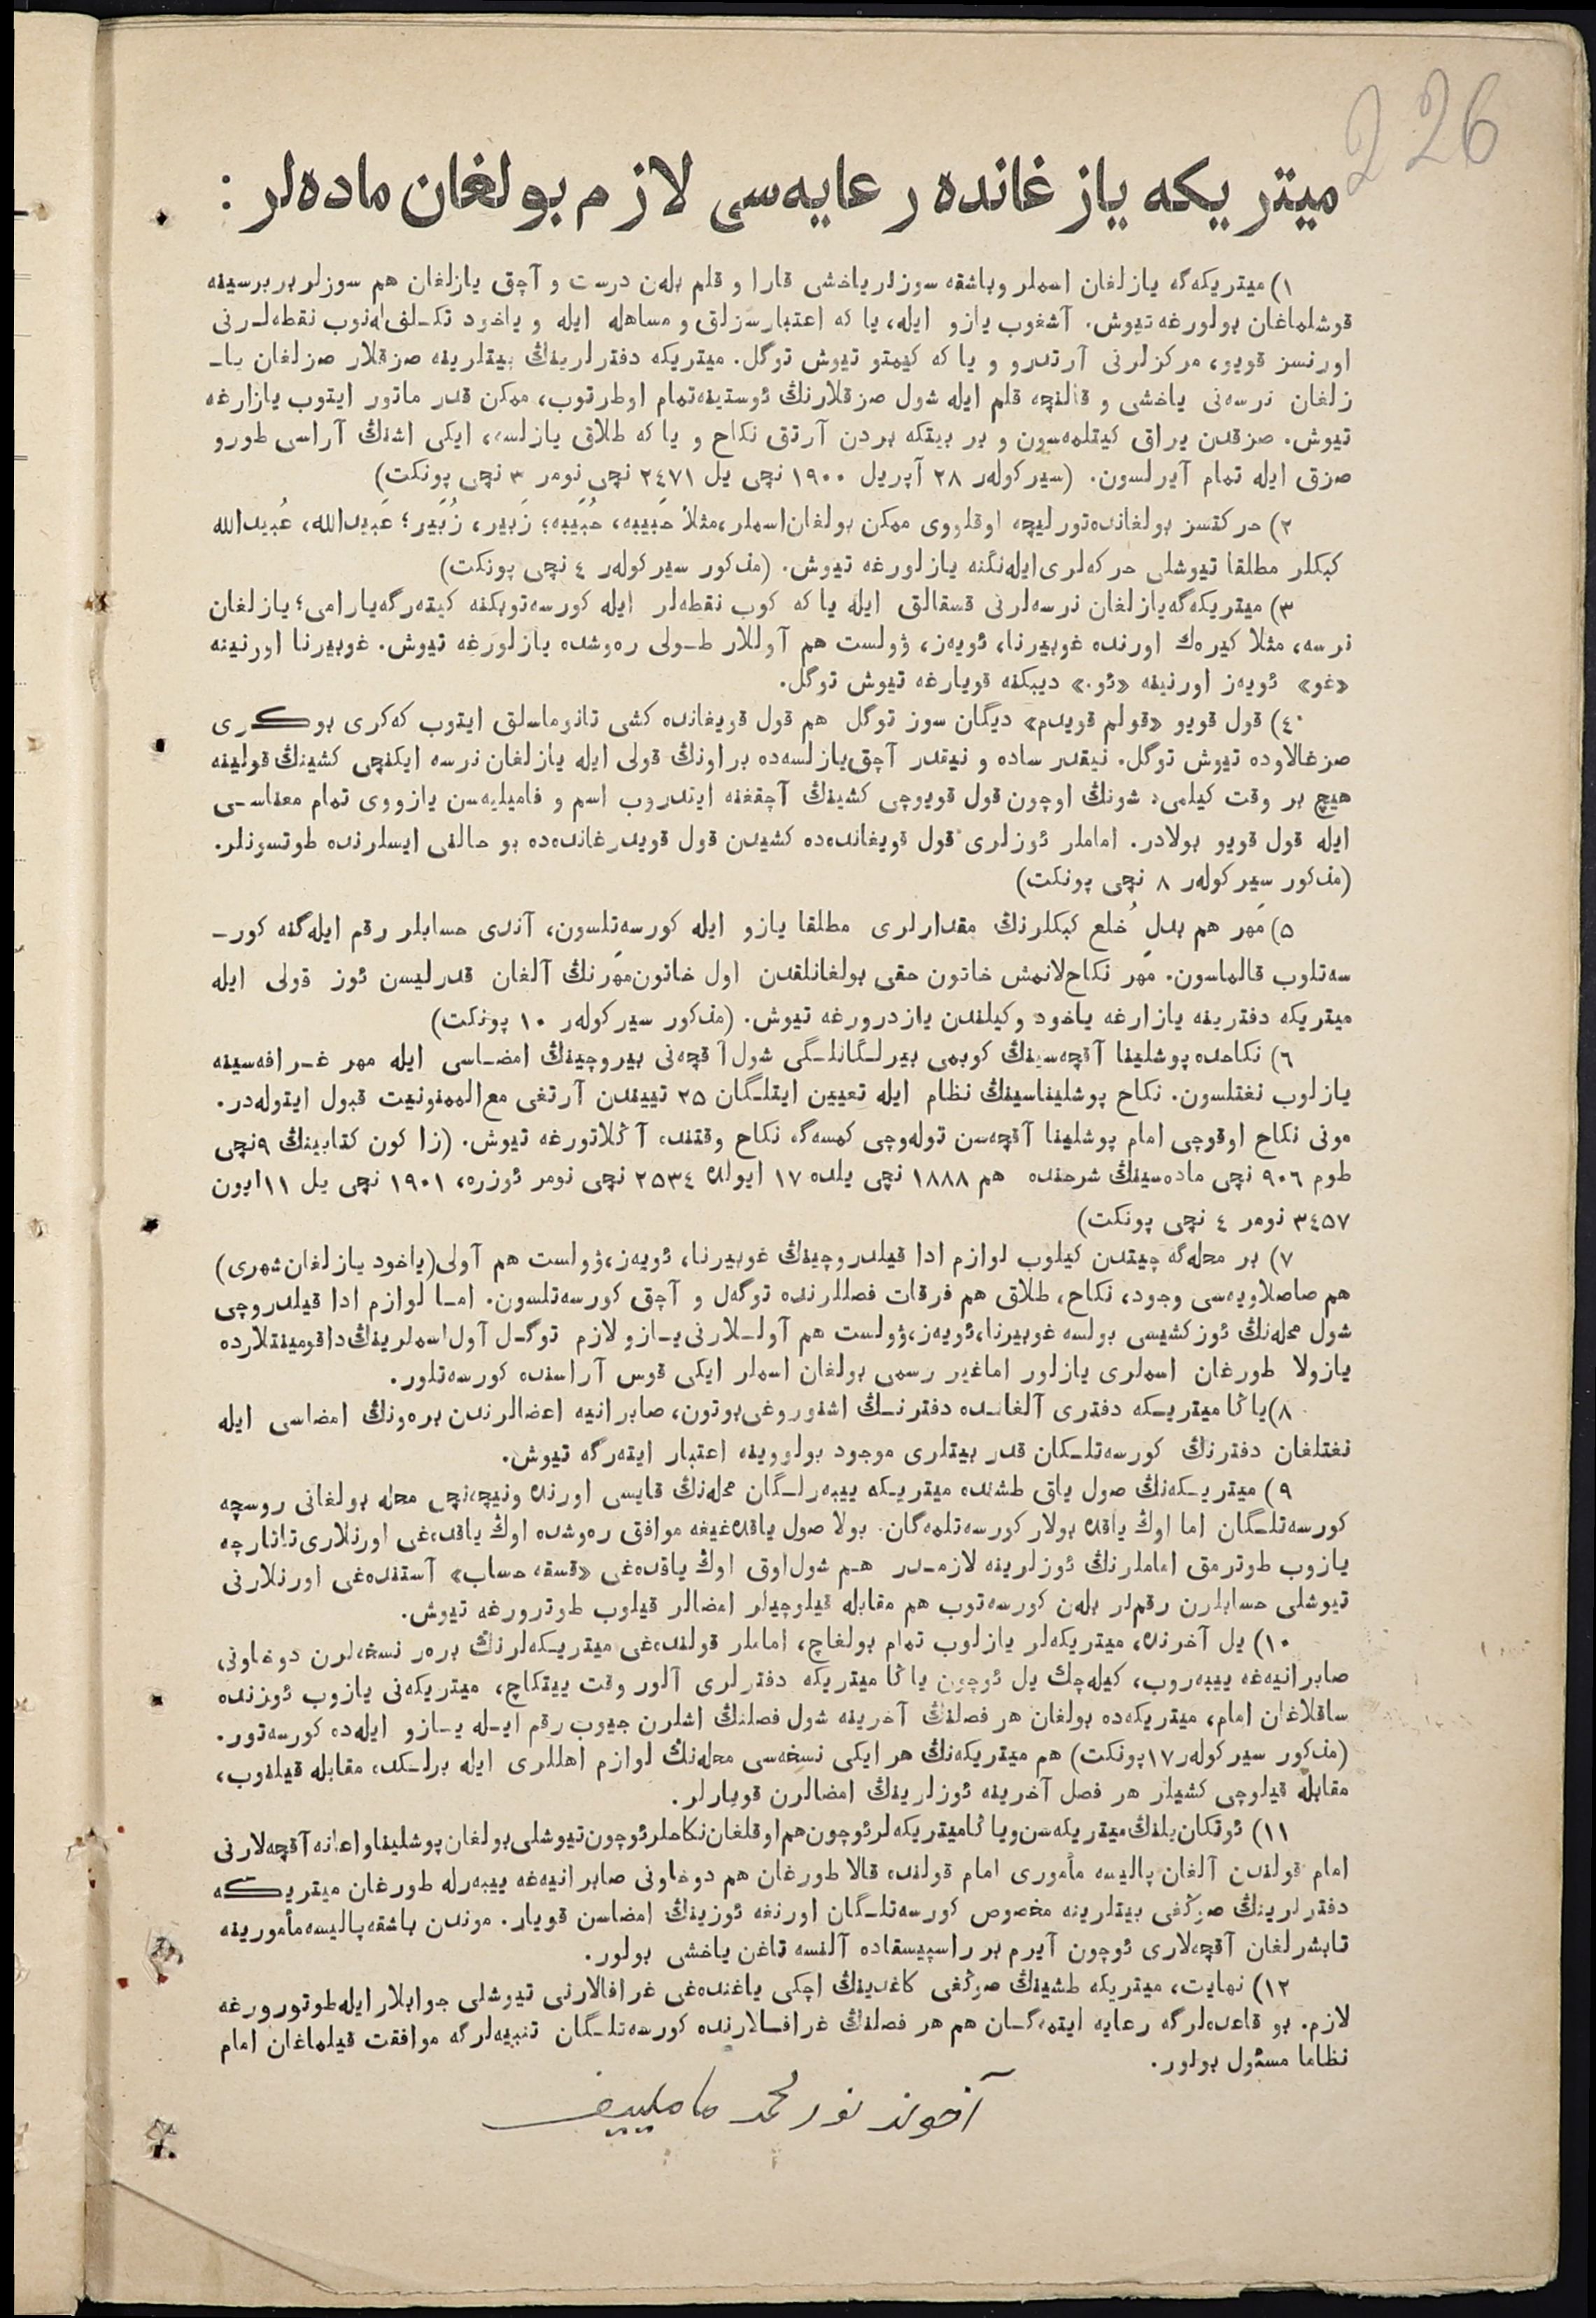 226
میتریكه یازغانده رعایه‌سی لازم بولغان ماده‌لر :
١) میتریكه‌گه یازلغان اسملر وباشقه سوزلر یاخشی قارا و قلم بله‌ن درست و آچق یازلغان هم سوزلر بربرسینه
قوشلماغان بولورغه تیوش. آشغوب یازو ایله، یا كه اعتبارسزلق و مساهله ایله و یاخود تكـلف‌له‌نوب نقطه‌لـرنی
اورنسز قویو، مركزلرنی آرتدرو و یا كه كیمتو تیوش توگل. میتریكه دفترلرینڭ بیتلرینه صزقلار صزلغان یا‌ـ
زلغان نرسه‌نی یاخشی و قالنچه قلم ایله شول صزقلارنڭ ئوستینه‌تمام اوطرتوب، ممكن قدر ماتور ایتوب یازارغه
تیوش. صزقدن یراق كیتلمه‌سون و بر بیتكه بردن آرتق نكاح و یا كه طلاق یازلسه، ایكی اشنڭ آراسی طورو
صزق ایله تمام آیرلسون. (سیركوله‌ر ٢٨ آپریل ١٩٠٠ نچی یل ٢٤٧١ نچی نومر ٣ نچی پونكت)
٢) حركتسز بولغانده‌تورلیچه اوقلووی ممكن بولغان‌اسملر،مثلاً حَبیبه، حُبَیبه؛ زَبیر، زُبَیر؛ عَبیدالله، عُبیدالله
كبكلر مطلقا تیوشلی حركه‌لری‌ایله‌نگنه یازلورغه تیوش. (مذكور سیركوله‌ر ٤ نچی پونكت)
٣) میتریكه‌گه‌یازلغان نرسه‌لرنی قسقالق ایله یا كه كوب نقطه‌لر ایله كورسه‌توبكنه كیته‌رگه‌یارامی؛ یازلغان
نرسه، مثلا كیره‌ك اورنده غوبیرنا، ئویه‌ز، ۋولست هم آوللار طـولی ره‌وشده یازلورغه تیوش. غوبیرنا اورنینه
«غو» ئویه‌ز اورنینه «ئو.» دیبكنه قویارغه تیوش توگل.
٤) قول قویو «قولم قویدم» دیگان سوز توگل هم قول قویغانده كشی تانوماسلق ایتوب كه‌كری بوكـری
صزغالاوده تیوش توگل. نیقدر ساده و نیقدر آچق‌یازلسه‌ده براونڭ قولی ایله یازلغان نرسه ایكنچی كشینڭ قولینه
هیچ بر وقت كیلمی، شونڭ اوچون قول قویوچی كشینڭ آچقغنه ایتدروب اسم و فامیلیه‌سن یازووی تمام معناسـی
ایله قول قویو بولادر. اماملر ئوزلری قول قویغانده‌ده كشیدن قول قویدرغانده‌ده بو حالنی ایسلرنده طوتسونلر.
(مذكور سیركوله‌ر ٨ نچی پونكت)
٥) مَهر هم بدل خُلع كبكلرنڭ مقدارلری مطلقا یازو ایله كورسه‌تلسون، آندی حسابلر رقم ایله‌گنه كور‌ـ
سه‌تلوب قالماسون. مَهر نكاح‌لانمش خاتون حقی بولغانلقدن اول خاتون‌مهرنڭ آلغان قدرلیسن ئوز قولی ایله
میتریكه دفترینه یازارغه یاخود وكیلندن یازدرورغه تیوش. (مذكور سیركوله‌ر ١٠ پونكت)
٦) نكاحده پوشلینا آقچه‌سینڭ كوبمی بیرلـگانلـگی شول آقچه‌نی بیروچینڭ امضـاسی ایله مهر غـرافه‌سینه
یازلوب نغتلسون. نكاح پوشلیناسینڭ نظام ایله تعیین ایتلـگان ٢٥ تییندن آرتغی مع‌الممنونیت قبول ایتوله‌در.
مونی نكاح اوقوچی امام پوشلینا آقچه‌سن توله‌وچی كمسه‌گه نكاح وقتنده آڭلاتورغه تیوش. (زاكون كتابینڭ ٩نچی
طوم ٩٠٦ نچی ماده‌سینڭ شرحنده هم ١٨٨٨ نچی یلده ١٧ ایولده ٢٥٣٤ نچی نومر ئوزره، ١٩٠١ نچی یل ١١ایون
٣٤٥٧ نومر ٤ نچی پونكت)
٧) بر محله‌گه چیتدن كیلوب لوازم ادا قیلدروچینڭ غوبیرنا، ئویه‌ز،ۋولست هم آولی(یاخود یازلغان‌شهری)
هم صاصلاویه‌سی وجود، نكاح، طلاق هم فرقات فصللرنده توگه‌ل و آچق كورسه‌تلسون. امـا لوازم ادا قیلدروچی
شول محله‌نڭ ئوزكشیسی بولسه غوبیرنا،ئویه‌ز،ۋولست هم آولـلارنی یـازو لازم توگـل آول‌اسملرینڭ‌داقومینتلارده
یازولا طورغان اسملری یازلور اماغیر رسمی بولغان اسملر ایكی قوس آراسنده كورسه‌تلور.
٨)یاڭا میتریـكه دفتری آلغانـده دفترنـڭ اشنوروغی‌بوتون، صابرانیه اعضالرندن بره‌ونڭ امضاسی ایله
نغتلغان دفترنڭ كورسه‌تلـكان قدر بیتلری موجود بولووینه اعتبار ایته‌رگه تیوش.
٩) میتریـكه‌نڭ صول یاق طشنده میتریـكه ییبه‌رلـگان محله‌نڭ قایسی اورنده ونیچه‌نچی محله بولغانی روسچه
كورسه‌تلـگان اما اوڭ یاقده بولار كورسه‌تلمه‌گان. بولا صول یاقده‌غیغه موافق ره‌وشده اوڭ یاقده‌غی اورنلاری‌تاتارچه
یازوب طوترمق اماملرنڭ ئوزلرینه لازمـدر هـم شول‌اوق اوڭ یاقده‌غی «قسقه حساب» آستنده‌غی اورنلارنی
تیوشلی حسابلرن رقملر بله‌ن كورسه‌توب هم مقابله قیلوچیلر امضالر قیلوب طوترورغه تیوش.
١٠) یل آخرنده، میتریكه‌لر یازلوب تمام بولغاچ، اماملر قولنده‌غی میتریـكه‌لرنڭ بره‌ر نسخه‌لرن دوخاونی
صابرانیه‌غه ییبه‌روب، كیله‌چك یل ئوچون یاڭا میتریكه دفترلری آلور وقت ییتكاچ، میتریكه‌نی یازوب ئوزنده
ساقلاغان امام، میتریكه‌ده بولغان هر فصلنڭ آخرینه شول فصلنڭ اشلرن جیوب رقم ایـله یـازو ایله‌ده كورسه‌تور.
(مذكور سیركوله‌ر١٧پونكت) هم میتریكه‌نڭ هر ایكی نسخه‌سی محله‌نڭ لوازم اهللری ایله برلـكده مقابله قیلنوب،
مقابله قیلوچی كشیلر هر فصل آخرینه ئوزلرینڭ امضالرن قویارلر.
١١) ئوتكان‌یلنڭ‌میتریكه‌سن‌ویاڭامیتریكه‌لرئوچون‌هم‌اوقلغان‌نكاحلرئوچون‌تیوشلی‌بولغان‌پوشلیناواعانه‌آقچه‌لارنی
امام قولندن آلغان پالیسه مأموری امام قولنده قالا طورغان هم دوخاونی صابرانیه‌غه ییبه‌رله طورغان میتریـكه
دفترلرینڭ صوڭغی بیتلرینه مخصوص كورسه‌تلـگان اورنغه ئوزینڭ امضاسن قویار. موندن باشقه‌پالیسه‌مأمورینه
تابشرلغان آقچه‌لاری ئوچون آیرم بر راسپیسقاده آلنسه تاغن یاخشی بولور.
١٢) نهایت، میتریكه طشینڭ صوڭغی كاغدینڭ اچكی یاغنده‌غی غرافالارنی تیوشلی جوابلار ایله‌طوتورورغه
لازم. بو قاعده‌لرگه رعایه ایتمه‌گـان هم هر فصلنڭ غرافـالارنده كورسه‌تلـگان تنبیه‌لرگه موافقت قیلماغان امام
نظاما مسئول بولور.
آخوند نورمحمد ماملییف